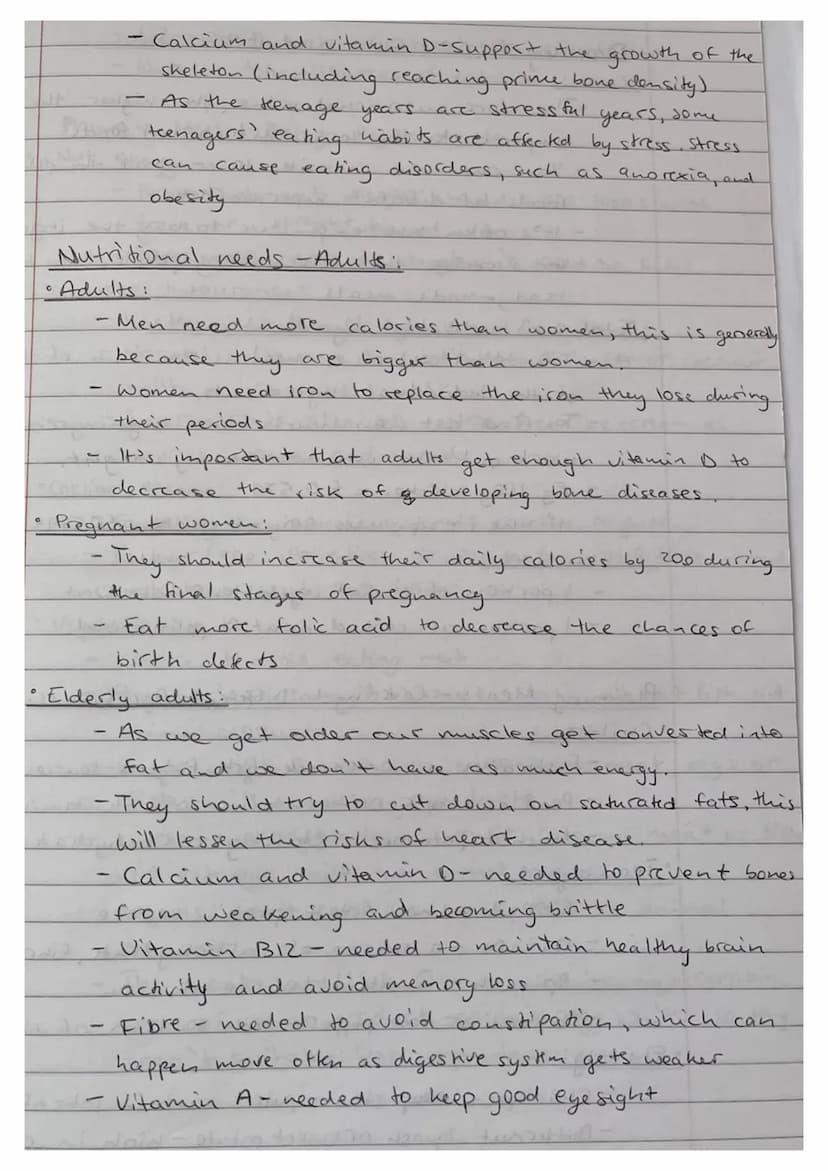 - Calcium and vitamin D-support the growth of the
skeleton (including reaching prime bone density)
- As the teenage years are stressful years, some
teenagers' eating habits are affected by stress. Stress
can cause eating disorders, such as anorexia, and
obesity
Nutritional needs - Adults:
• Adults:
- Men need more calories than women, this is generally
because they are bigger than women.
- Women need iron to replace the iron they lose during
their periods
- It's important that adults get enough vitamin D to
decrease the risk of developing bone diseases.
• Pregnant women:
- They should increase their daily calories by 200 during
the final stages of pregnancy
- Eat more folic acid to decrease the chances of
birth defects
• Elderly adults:
- As we get older our muscles get converted into
fat and we don't have as much energy.
- They should try to cut down on saturated fats, this
will lessen the risks of heart disease.
- Calcium and vitamin D - needed to prevent bones
from weakening and becoming brittle
- Vitamin B12 - needed to maintain healthy brain
activity and avoid memory loss
- Fibre - needed to avoid constipation, which can
happen more often as digestive system gets weaker
- Vitamin A - needed to keep good eyesight